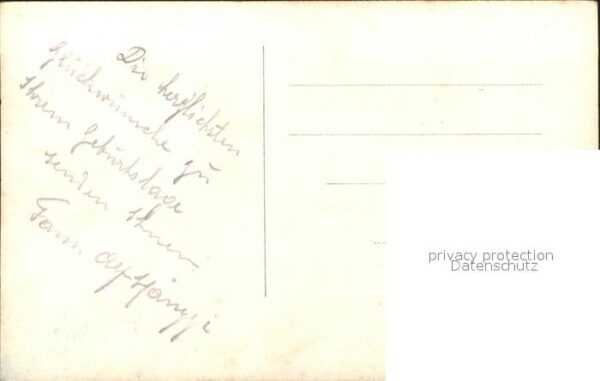 Die herzlichsten
Glückwünsche zu
Ihrem Geburtstage
senden Ihnen
Fam. Hänggi
privacy protection
Datenschutz